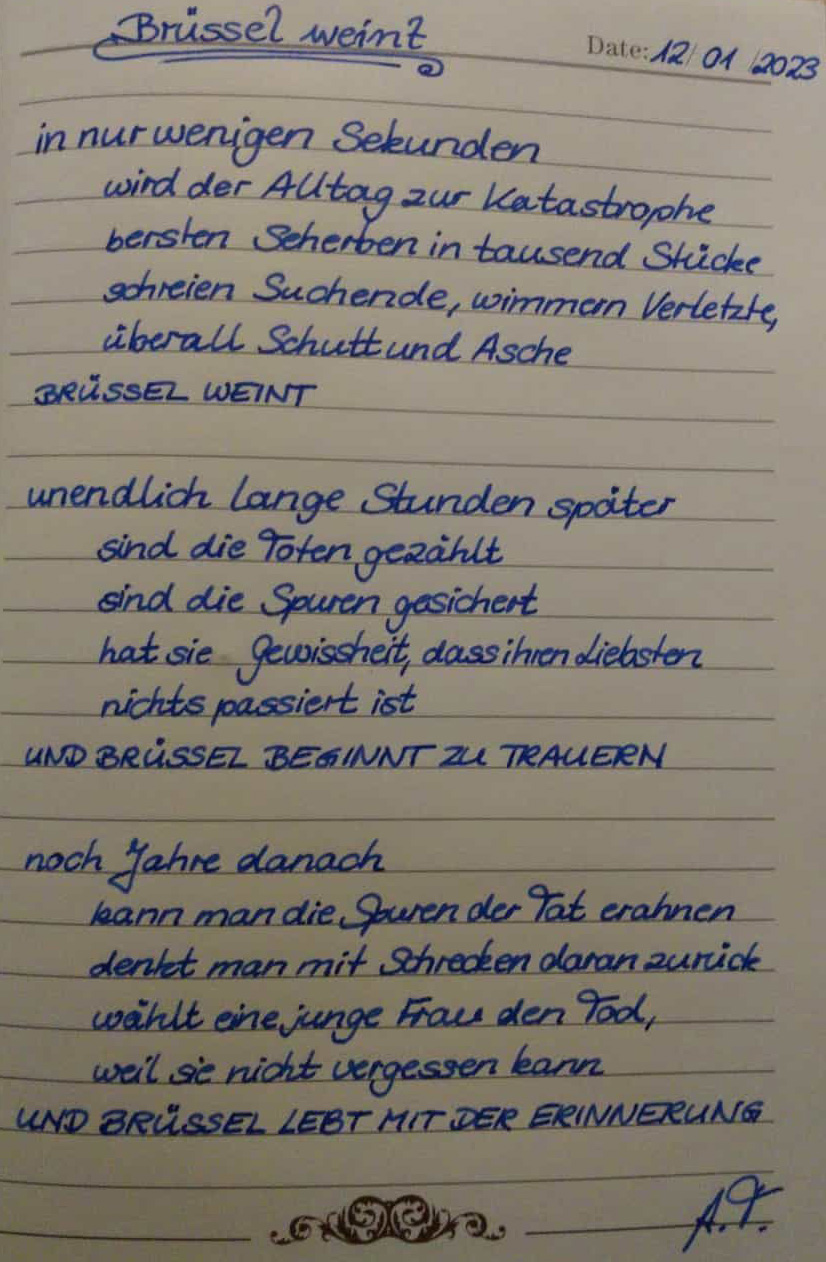 Brüssel weint
Date: 12/01/2023
in nur wenigen Sekunden
wird der Alltag zur Katastrophe
bersten Scherben in tausend Stücke
schreien Suchende, wimmern Verletzte,
überall Schutt und Asche
BRÜSSEL WEINT
unendlich lange Stunden später
sind die Toten gezählt
sind die Spuren gesichert
hat sie Gewissheit, dass ihren Liebsten
nichts passiert ist
UND BRÜSSEL BEGINNT ZU TRAUERN
noch Jahre danach
kann man die Spuren der Tat erahnen
denkt man mit Schrecken daran zurück
wählt eine junge Frau den Tod,
weil sie nicht vergessen kann
UND BRÜSSEL LEBT MIT DER ERINNERUNG
A.T.